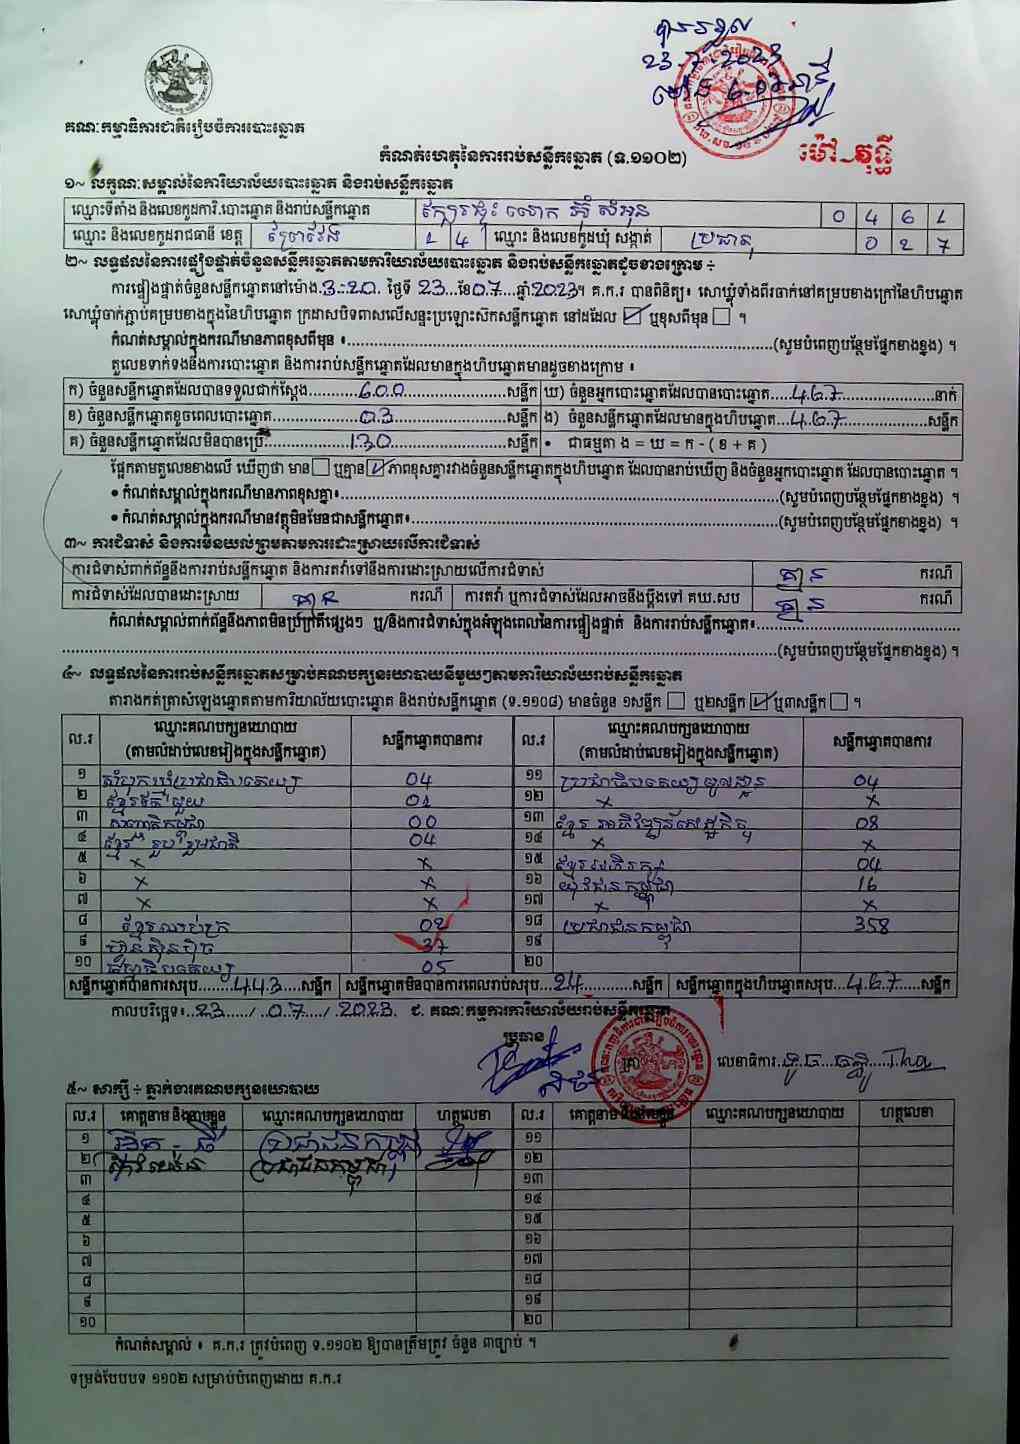 បានទទួល
23.7.2023
គណៈកម្មាធិការជាតិរៀបចំការបោះឆ្នោត
កំណត់ហេតុនៃការរាប់សន្លឹកឆ្នោត (ទ.១១០២)
ម៉ៅ វុទ្ធី
១~ លក្ខណៈសម្គាល់នៃការិយាល័យបោះឆ្នោត និងរាប់សន្លឹកឆ្នោត
ឈ្មោះទីតាំង និងលេខកូដការិ.បោះឆ្នោត និងរាប់សន្លឹកឆ្នោត ក្បែរផ្ទះ លោក អ៊ុំ សំអុន 0 4 6 1
ឈ្មោះ និងលេខកូដរាជធានី ខេត្ត ព្រៃវែង 1 4 ឈ្មោះ និងលេខកូដឃុំ សង្កាត់ 0 2 7
២~ លទ្ធផលនៃការផ្ទៀងផ្ទាត់ចំនួនសន្លឹកឆ្នោតតាមការិយាល័យបោះឆ្នោត និងរាប់សន្លឹកឆ្នោតដូចខាងក្រោម ÷
ការផ្ទៀងផ្ទាត់ចំនួនសន្លឹកឆ្នោតនៅម៉ោង 3:20 ថ្ងៃទី 23 ខែ 07 ឆ្នាំ 2023។ គ.ក.រ បានពិនិត្យ៖ សោឃ្លុំទាំងពីរចាក់នៅគម្របខាងក្រៅនៃហិបឆ្នោត
សោឃ្លុំចាក់ភ្ជាប់គម្របខាងក្នុងនៃហិបឆ្នោត ក្រដាសបិទពាសលើសន្ទះប្រឡោះស៊កសន្លឹកឆ្នោត នៅដដែល ☑ ឬខុសពីមុន ☐ ។
កំណត់សម្គាល់ក្នុងករណីមានភាពខុសពីមុន ៖ (សូមបំពេញបន្ថែមផ្នែកខាងខ្នង) ។
តួលេខទាក់ទងនឹងការបោះឆ្នោត និងការរាប់សន្លឹកឆ្នោតដែលមានក្នុងហិបឆ្នោតមានដូចខាងក្រោម ៖
ក) ចំនួនសន្លឹកឆ្នោតដែលបានទទួលជាក់ស្តែង 600 សន្លឹក ឃ) ចំនួនអ្នកបោះឆ្នោតដែលបានបោះឆ្នោត 467 នាក់
ខ) ចំនួនសន្លឹកឆ្នោតខូចពេលបោះឆ្នោត 03 សន្លឹក ង) ចំនួនសន្លឹកឆ្នោតដែលមានក្នុងហិបឆ្នោត 467 សន្លឹក
គ) ចំនួនសន្លឹកឆ្នោតដែលមិនបានប្រើ 130 សន្លឹក • ជាធម្មតា ង = ឃ = ក - ( ខ + គ )
ផ្អែកតាមតួលេខខាងលើ ឃើញថា មាន ☐ ឬគ្មាន ☑ ភាពខុសគ្នារវាងចំនួនសន្លឹកឆ្នោតក្នុងហិបឆ្នោត ដែលបានរាប់ឃើញ និងចំនួនអ្នកបោះឆ្នោត ដែលបានបោះឆ្នោត ។
• កំណត់សម្គាល់ក្នុងករណីមានភាពខុសគ្នា៖ (សូមបំពេញបន្ថែមផ្នែកខាងខ្នង) ។
• កំណត់សម្គាល់ក្នុងករណីមានវត្ថុមិនមែនជាសន្លឹកឆ្នោត៖ (សូមបំពេញបន្ថែមផ្នែកខាងខ្នង) ។
៣~ ការជំទាស់ និងការមិនយល់ព្រមតាមការដោះស្រាយលើការជំទាស់
ការជំទាស់ពាក់ព័ន្ធនឹងការរាប់សន្លឹកឆ្នោត និងការតវ៉ាទៅនឹងការដោះស្រាយលើការជំទាស់ គ្មាន ករណី
ការជំទាស់ដែលបានដោះស្រាយ គ្មាន ករណី ការតវ៉ា ឬការជំទាស់ដែលអាចនឹងប្តឹងទៅ គឃ.សប គ្មាន ករណី
កំណត់សម្គាល់ពាក់ព័ន្ធនឹងភាពមិនប្រក្រតីផ្សេងៗ ឬ/និងការជំទាស់ក្នុងអំឡុងពេលនៃការផ្ទៀងផ្ទាត់ និងការរាប់សន្លឹកឆ្នោត៖
(សូមបំពេញបន្ថែមផ្នែកខាងខ្នង) ។
៤~ លទ្ធផលនៃការរាប់សន្លឹកឆ្នោតសម្រាប់គណបក្សនយោបាយនីមួយៗតាមការិយាល័យរាប់សន្លឹកឆ្នោត
តារាងកត់ត្រាសំឡេងឆ្នោតតាមការិយាល័យបោះឆ្នោត និងរាប់សន្លឹកឆ្នោត (ទ.១១០៨) មានចំនួន ១សន្លឹក ☐ ឬ២សន្លឹក ☑ ឬ៣សន្លឹក ☐ ។
ល.រ ឈ្មោះគណបក្សនយោបាយ (តាមលំដាប់លេខរៀងក្នុងសន្លឹកឆ្នោត) សន្លឹកឆ្នោតបានការ ល.រ ឈ្មោះគណបក្សនយោបាយ (តាមលំដាប់លេខរៀងក្នុងសន្លឹកឆ្នោត) សន្លឹកឆ្នោតបានការ
១ សំបុកឃ្មុំប្រជាធិបតេយ្យ 04 ១១ ប្រជាធិបតេយ្យមូលដ្ឋាន 04
២ ខ្មែរឈប់ជួយ 01 ១២ × ×
៣ សញ្ជាតិកម្ពុជា 00 ១៣ ខ្មែរអភិវឌ្ឍន៍សេដ្ឋកិច្ច 08
៤ ខ្មែររួបរួមជាតិ 04 ១៤ × ×
៥ × × ១៥ ខ្មែរអភិរក្ស 04
៦ × × ១៦ យុវជនកម្ពុជា 16
៧ × × ១៧ × ×
៨ ខ្មែរឈប់ក្រ 02 ១៨ ប្រជាជនកម្ពុជា 358
៩ ហ៊្វុនស៊ិនប៉ិច 37 ១៩
១០ ធម្មាធិបតេយ្យ 05 ២០
សន្លឹកឆ្នោតបានការសរុប 443 សន្លឹក សន្លឹកឆ្នោតមិនបានការពេលរាប់សរុប 24 សន្លឹក សន្លឹកឆ្នោតក្នុងហិបឆ្នោតសរុប 467 សន្លឹក
កាលបរិច្ឆេទ៖ 23 / 07 / 2023 ជ. គណៈកម្មការការិយាល័យរាប់សន្លឹកឆ្នោត
ប្រធាន
លេខាធិការ
៥~ សាក្សី ÷ ភ្នាក់ងារគណបក្សនយោបាយ
ល.រ គោត្តនាម និងនាមខ្លួន ឈ្មោះគណបក្សនយោបាយ ហត្ថលេខា ល.រ គោត្តនាម និងនាមខ្លួន ឈ្មោះគណបក្សនយោបាយ ហត្ថលេខា
១ ប្រជាជនកម្ពុជា ១១
២ ប្រជាជនកម្ពុជា ១២
៣ ១៣
៤ ១៤
៥ ១៥
៦ ១៦
៧ ១៧
៨ ១៨
៩ ១៩
១០ ២០
កំណត់សម្គាល់ ៖ គ.ក.រ ត្រូវបំពេញ ទ.១១០២ ឱ្យបានត្រឹមត្រូវ ចំនួន ៣ច្បាប់ ។
ទម្រង់បែបបទ ១១០២ សម្រាប់បំពេញដោយ គ.ក.រ